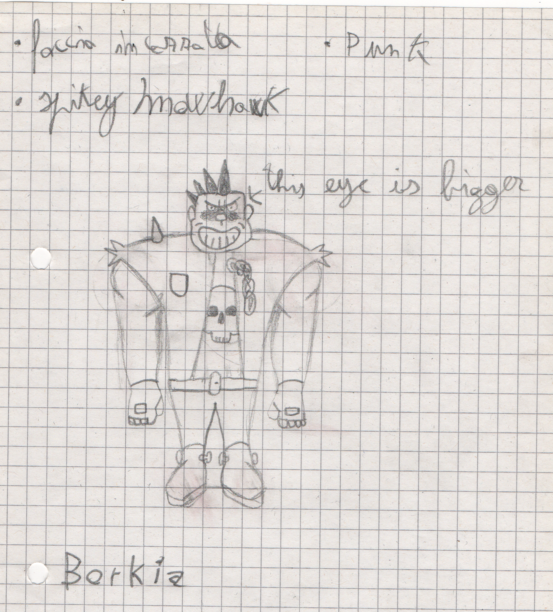 • faccia incazzata
• Punk
• spikey mowhawk
this eye is bigger
Borkia